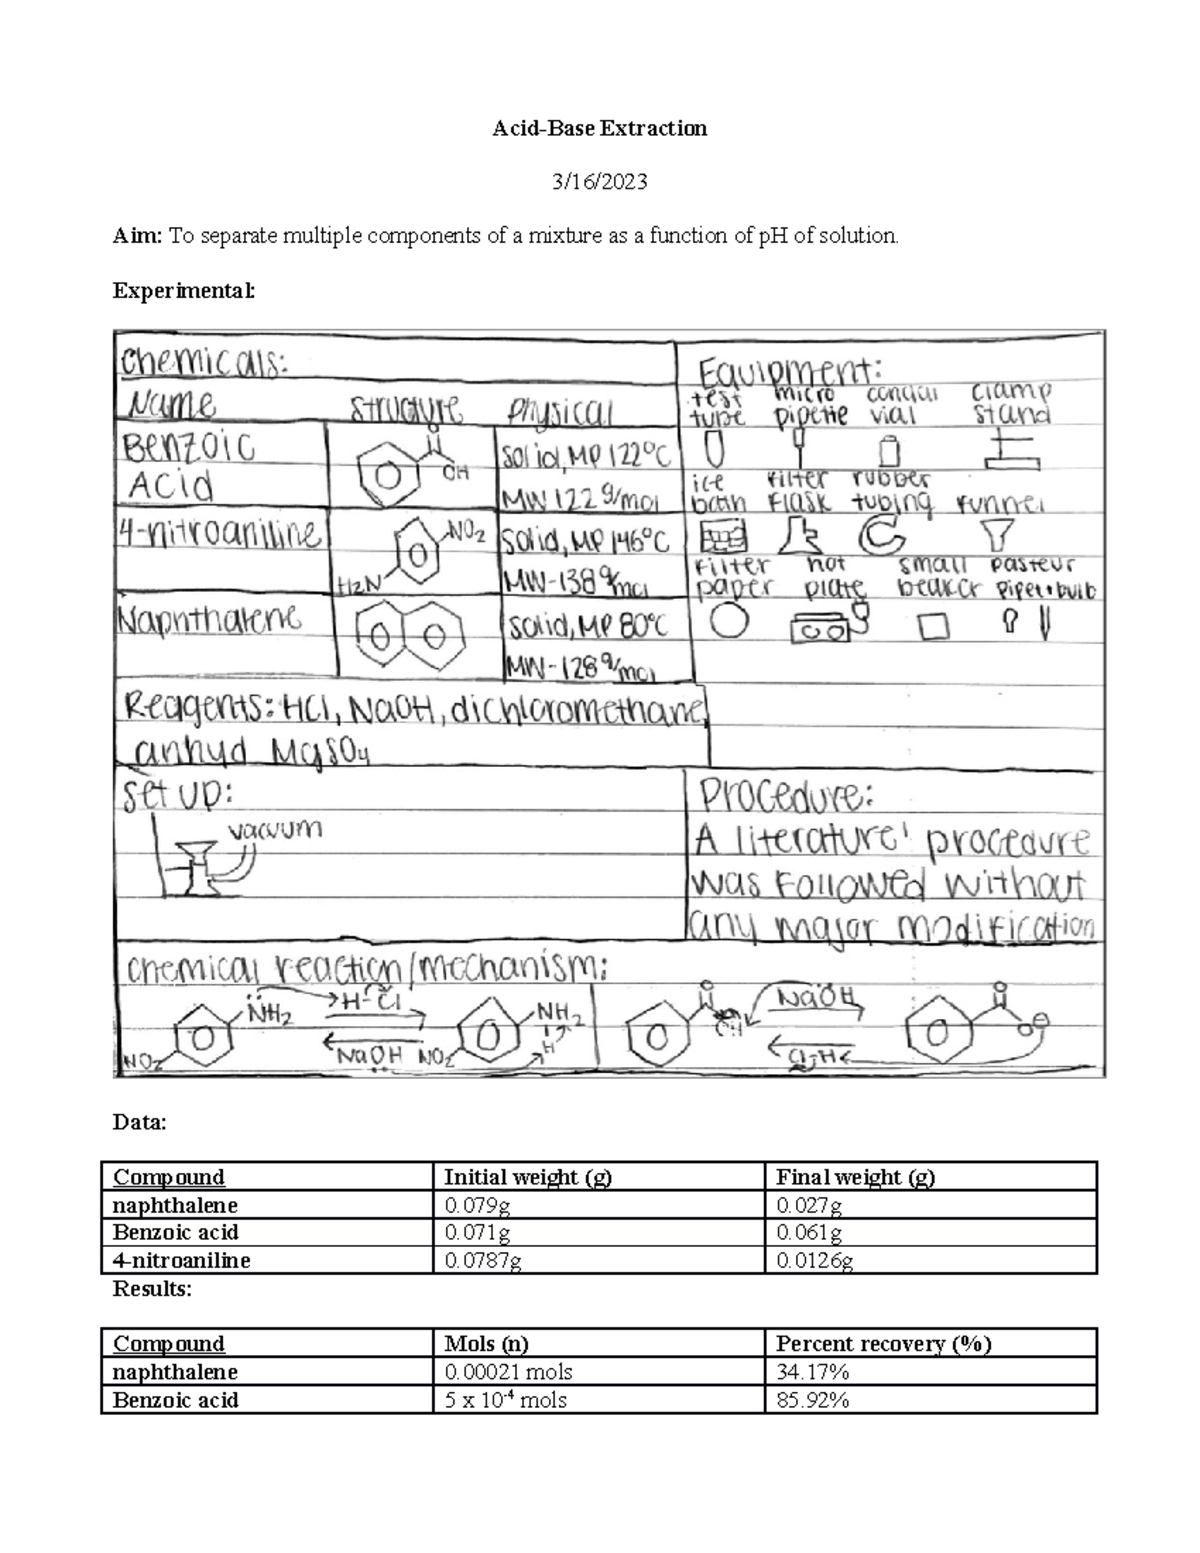 Acid-Base Extraction
3/16/2023
Aim: To separate multiple components of a mixture as a function of pH of solution.
Experimental:
Chemicals:
Name structure physical
Benzoic Acid
O
OH
solid, MP 122°C
MW 122 g/mol
4-nitroaniline
NO2
H2N
solid, MP 146°C
MW-138 g/mol
Naphthalene
solid, MP 80°C
MW-128 g/mol
Reagents: HCl, NaOH, dichloromethane,
anhyd MgSO4
Equipment:
test tube
micro pipette
conical vial
clamp stand
ice bath
filter flask
rubber tubing
funnel
filter paper
hot plate
small beaker
pasteur pipet+bulb
set up:
vacuum
Procedure:
A literature' procedure
was followed without
any major modification
chemical reaction/mechanism:
NH2
NO2
H-Cl
NaOH
NH2
H
NO2
O
OH
NaOH
Cl-H
O
O⊖
Data:
Compound Initial weight (g) Final weight (g)
naphthalene 0.079g 0.027g
Benzoic acid 0.071g 0.061g
4-nitroaniline 0.0787g 0.0126g
Results:
Compound Mols (n) Percent recovery (%)
naphthalene 0.00021 mols 34.17%
Benzoic acid 5 x 10⁻⁴ mols 85.92%